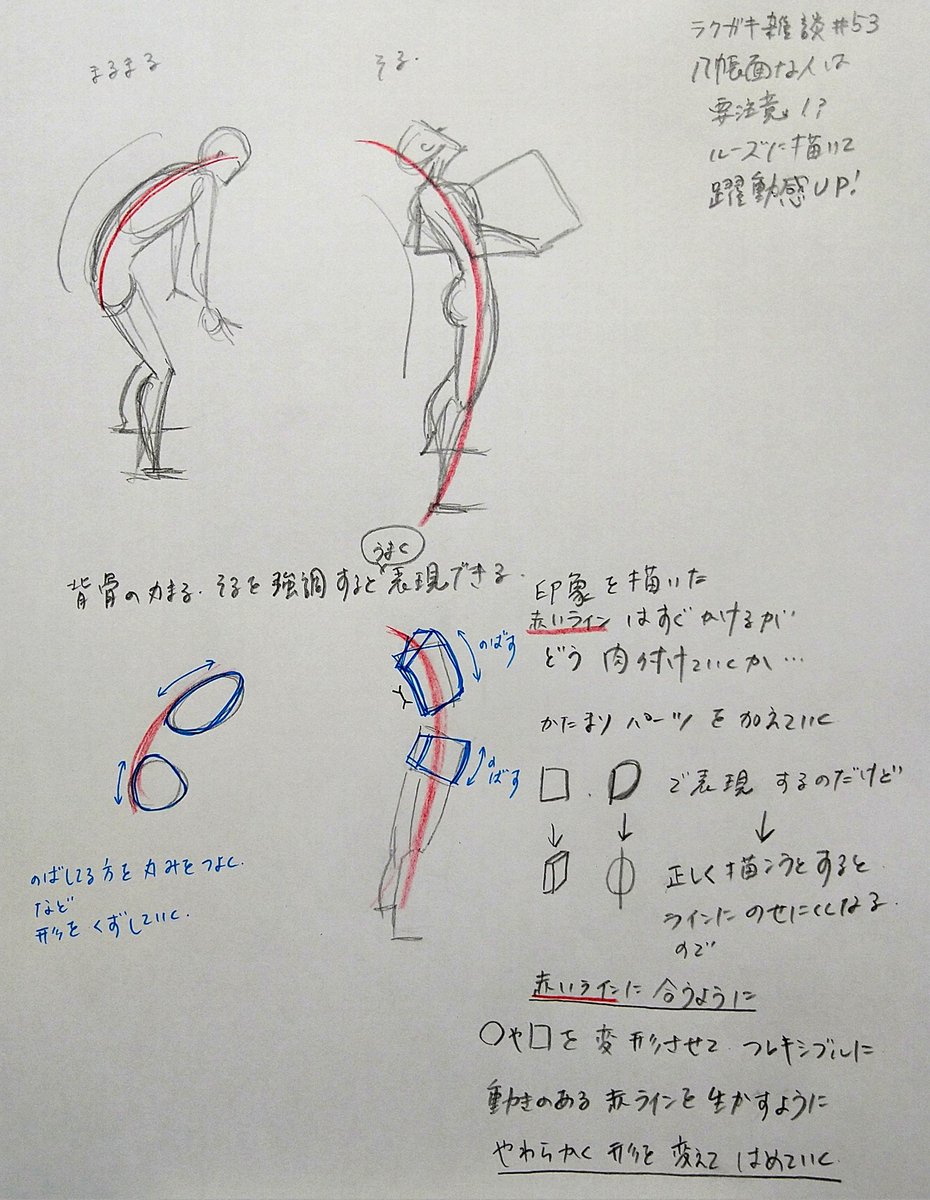 ラクガキ雑談#53
几帳面な人は
要注意!?
ルーズに描いて
躍動感UP!
まるまる
そる.
うまく
背骨の丸まる.そるを強調すると表現できる.
印象を描いた
赤いライン はすぐかけるが
どう肉付けていくか…
かたまりパーツを加えていく
で表現するのだけど
正しく描こうとすると
ラインにのせにくくなる
ので
赤いラインに合うように
○や□を変形させて フレキシブルに
動きのある赤ラインを生かすように
やわらかく形を変えて はめていく
のばす
のばす
のばしてる方を丸みをつよく.
など
形をくずしていく.